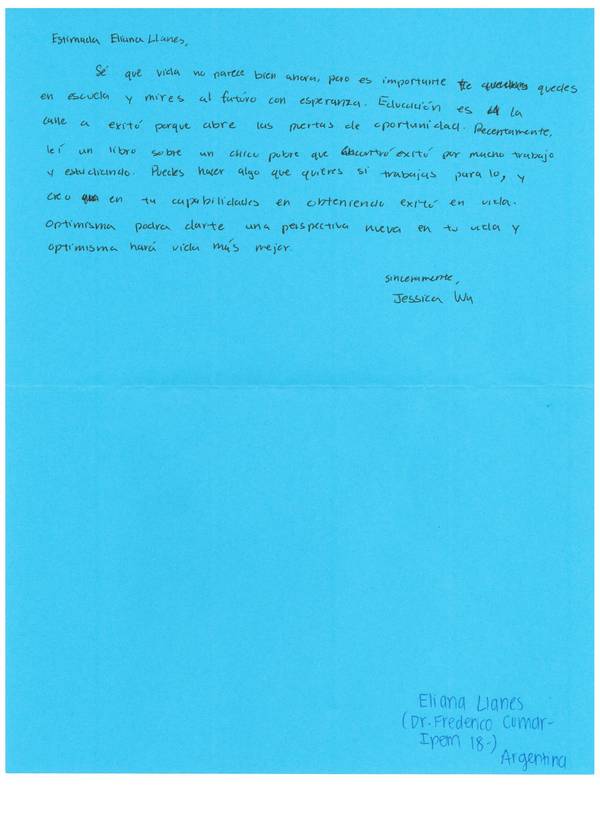 Estimada Eliana Llanes,
Sé que vida no parece bien ahora, pero es importante te quedes
en escuela y mires al futuro con esperanza. Educación es la
calle a exitó porque abre las puertas de oportunidad. Recentamente,
leí un libro sobre un chico pobre que exitó por mucho trabajo
y estudiando. Puedes hacer algo que quieres si trabajas para lo, y
creo en tu capabilidades en obteniendo exitó en vida.
Optimisma podra darte una perspectiva nueva en tu vida y
optimisma hará vida más mejor.
sinceramente,
Jessica Wu
Eliana Llanes
(Dr. Frederico Cumar-
Ipem 18-)
Argentina